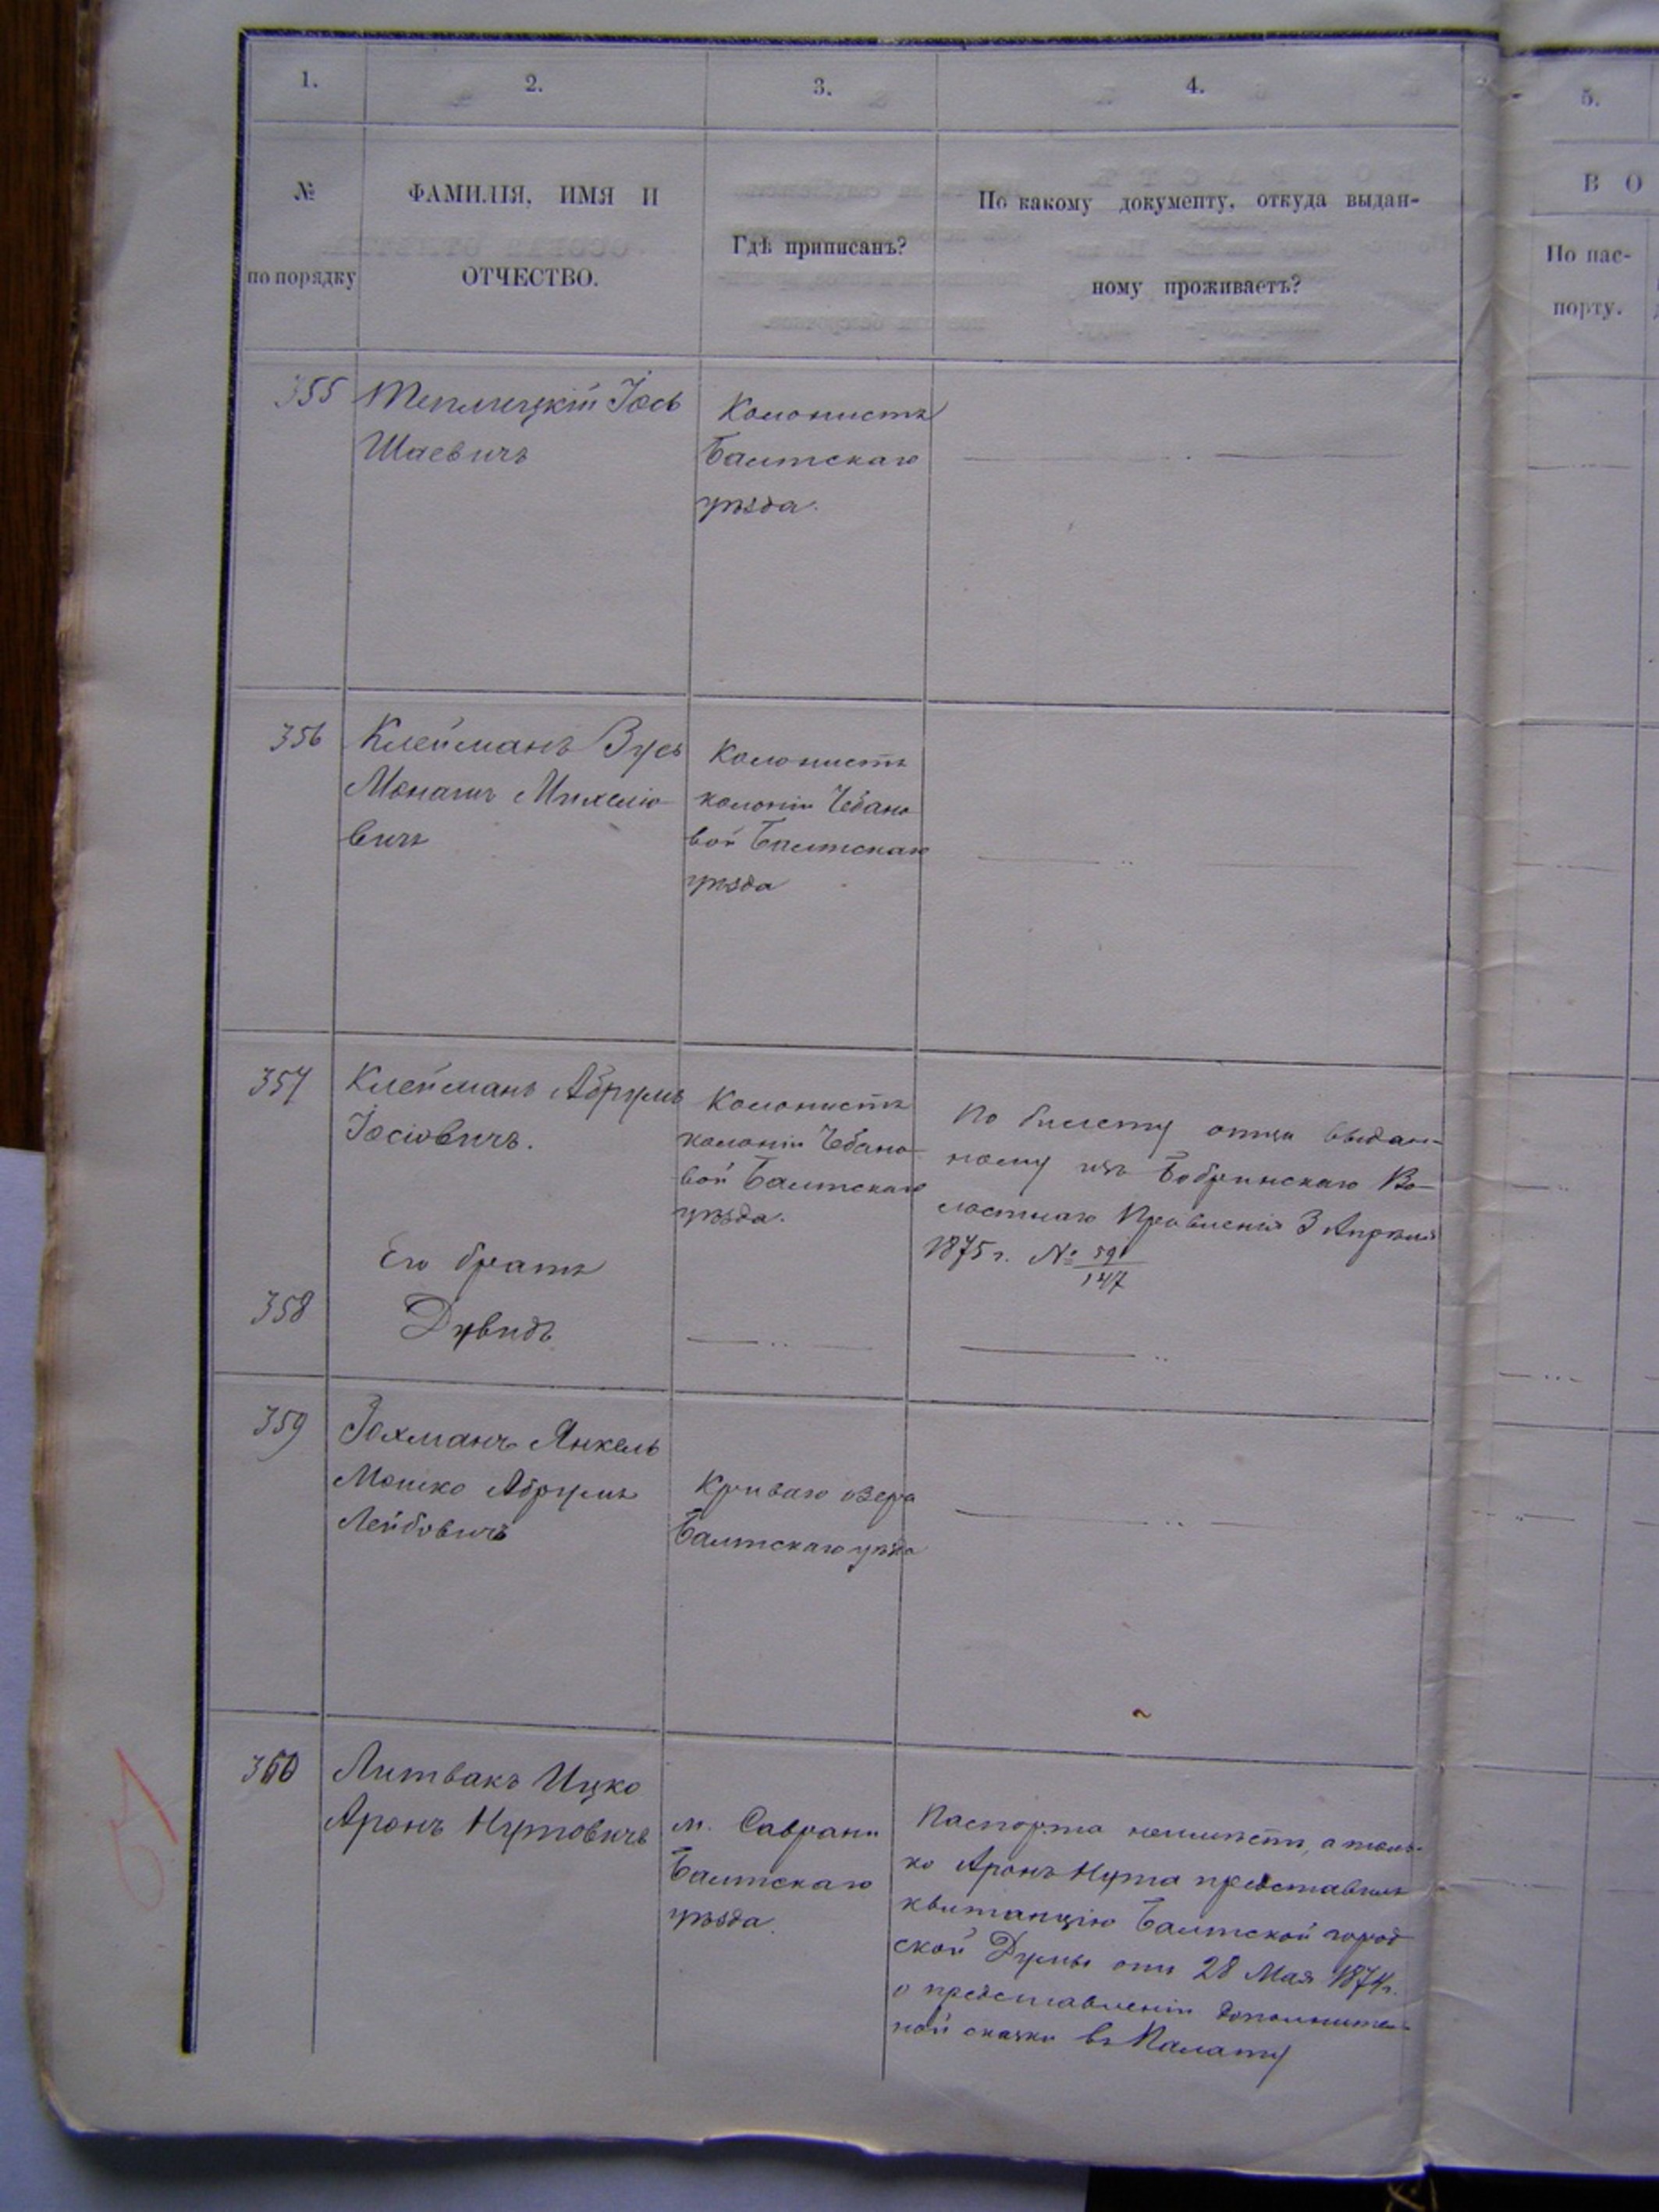 1.
2.
3.
4.
5.
№
по порядку
ФАМИЛІЯ, ИМЯ И
ОТЧЕСТВО.
Гдѣ приписанъ?
По какому документу, откуда выдан-
ному проживаетъ?
В О
По пас-
порту.
355
Теплицкій Іось
Шаевичъ
Колонистъ
Балтскаго
уѣзда.
356
Клейманъ Зусь
Монашъ Михеліо-
вичъ
Колонистъ
колоніи Чебано
вой Балтскаго
уѣзда
357
Клейманъ Абрумъ
Іосіовичъ.
Колонистъ
колоніи Чебано
вой Балтскаго
уѣзда.
По билету отца выдан-
ному изъ Бобринскаго Во-
лостнаго Правленія 3 Апрѣля
1875 г. № 591/147
Его братъ
358
Дувидъ
359
Зохманъ Янкель
Мошко Абрумъ
Лейбовичъ
Криваго озера
Балтскаго уѣзда
360
Литвакъ Ицко
Аронъ Нутовичъ
м. Саврани
Балтскаго
уѣзда.
Паспорта неимѣетъ, а толь-
ко Аронъ Нута представилъ
квитанцію Балтской город
ской Думы отъ 28 Мая 1874 г.
о представленіи дополнитель-
ной сказки въ Палату